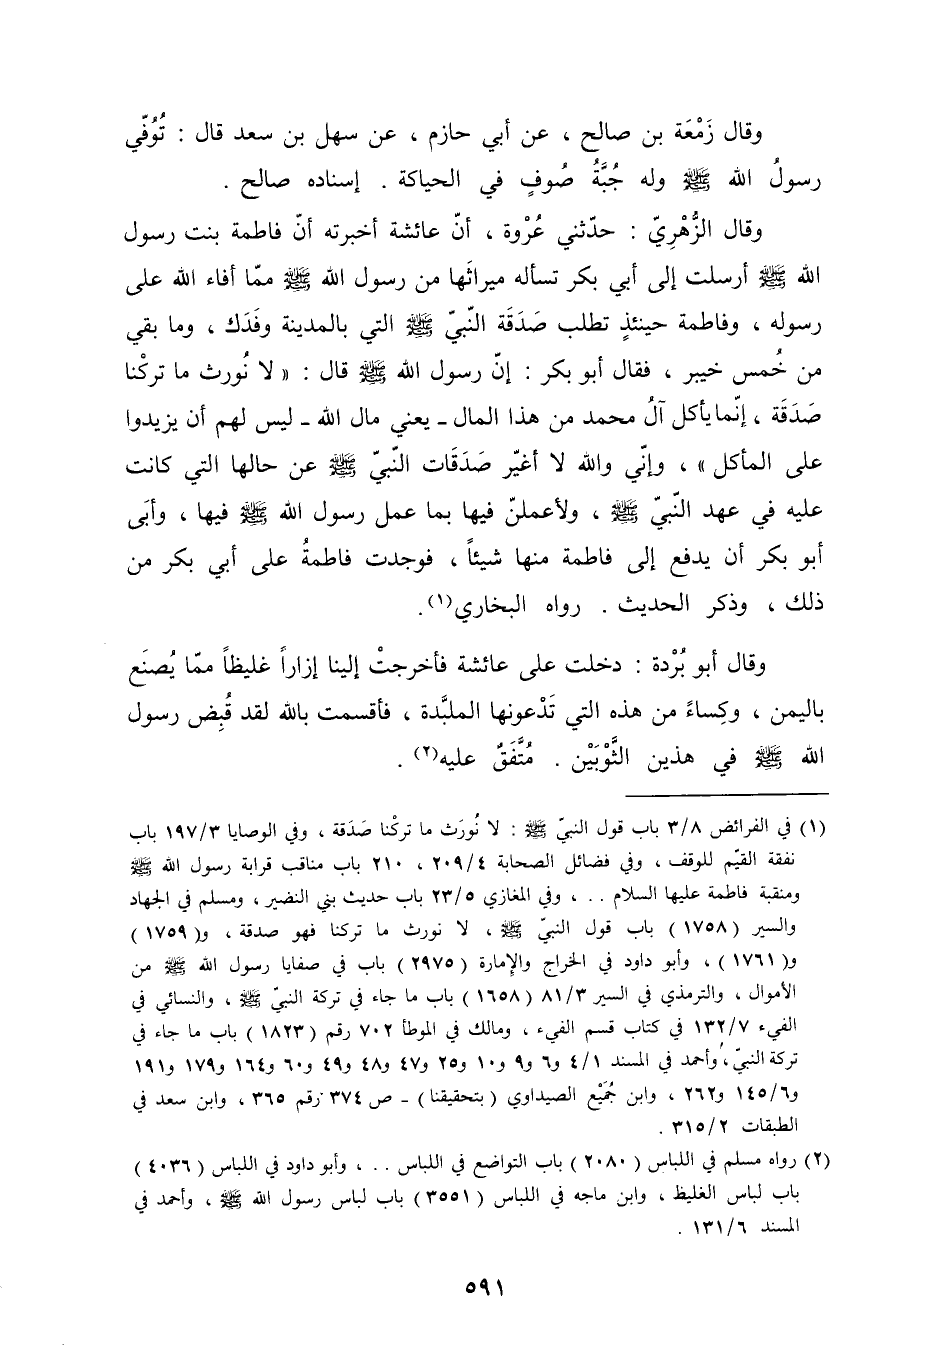 وقال زَمْعَة بن صالح ، عن أبي حازم ، عن سهل بن سعد قال : تُوُفّي
رسولُ الله ﷺ وله جُبَّةُ صُوفٍ في الحياكة . إسناده صالح .
وقال الزُّهْرِيّ : حدّثني عُرْوة ، أنّ عائشة أخبرته أنّ فاطمة بنت رسول
الله ﷺ أرسلت إلى أبي بكر تسأله ميراثَها من رسول الله ﷺ ممّا أفاء الله على
رسوله ، وفاطمة حينئذٍ تطلب صَدَقَة النّبيّ ﷺ التي بالمدينة وفَدَك ، وما بقي
من خُمس خيبر ، فقال أبو بكر : إنّ رسول الله ﷺ قال : « لا نُورث ما تركْنا
صَدَقَة ، إنّما يأكل آلُ محمد من هذا المال ـ يعني مال الله ـ ليس لهم أن يزيدوا
على المأكل » ، وإنّي والله لا أغيّر صَدَقات النّبيّ ﷺ عن حالها التي كانت
عليه في عهد النّبيّ ﷺ ، ولأعملنّ فيها بما عمل رسول الله ﷺ فيها ، وأبَى
أبو بكر أن يدفع إلى فاطمة منها شيئاً ، فوجدت فاطمةُ على أبي بكر من
ذلك ، وذكر الحديث . رواه البخاري(١).
وقال أبو بُرْدة : دخلت على عائشة فأخرجتْ إلينا إزاراً غليظاً ممّا يُصنَع
باليمن ، وكِساءً من هذه التي تَدْعونها الملبَّدة ، فأقسمت بالله لقد قُبِض رسول
الله ﷺ في هذين الثَّوْبَيْن . مُتَّفَقٌ عليه(٢) .
(١) في الفرائض ٣/٨ باب قول النبيّ ﷺ : لا نُورَث ما تركْنا صَدَقة ، وفي الوصايا ١٩٧/٣ باب
نفقة القيّم للوقف ، وفي فضائل الصحابة ٢٠٩/٤ ، ٢١٠ باب مناقب قرابة رسول الله ﷺ
ومنقبة فاطمة عليها السلام . . ، وفي المغازي ٢٣/٥ باب حديث بني النضير ، ومسلم في الجهاد
والسير ( ١٧٥٨ ) باب قول النبيّ ﷺ ، لا نورث ما تركنا فهو صدقة ، و( ١٧٥٩ )
و( ١٧٦١ ) ، وأبو داود في الخراج والإمارة ( ٢٩٧٥ ) باب في صفايا رسول الله ﷺ من
الأموال ، والترمذي في السير ٨١/٣ ( ١٦٥٨ ) باب ما جاء في تركة النبيّ ﷺ ، والنسائي في
الفيء ١٣٢/٧ في كتاب قسم الفيء ، ومالك في الموطأ ٧٠٢ رقم ( ١٨٢٣ ) باب ما جاء في
تركة النبيّ ، وأحمد في المسند ٤/١ و٦ و٩ و١٠ و٢٥ و٤٧ و٤٨ و٤٩ و٦٠ و١٦٤ و١٧٩ و١٩١
و١٤٥/٦ و٢٦٢ ، وابن جُمَيْع الصيداوي ( بتحقيقنا ) ـ ص ٣٧٤ رقم ٣٦٥ ، وابن سعد في
الطبقات ٣١٥/٢ .
(٢) رواه مسلم في اللباس ( ٢٠٨٠ ) باب التواضع في اللباس . . ، وأبو داود في اللباس ( ٤٠٣٦ )
باب لباس الغليظ ، وابن ماجه في اللباس ( ٣٥٥١ ) باب لباس رسول الله ﷺ ، وأحمد في
المسند ١٣١/٦ .
٥٩١